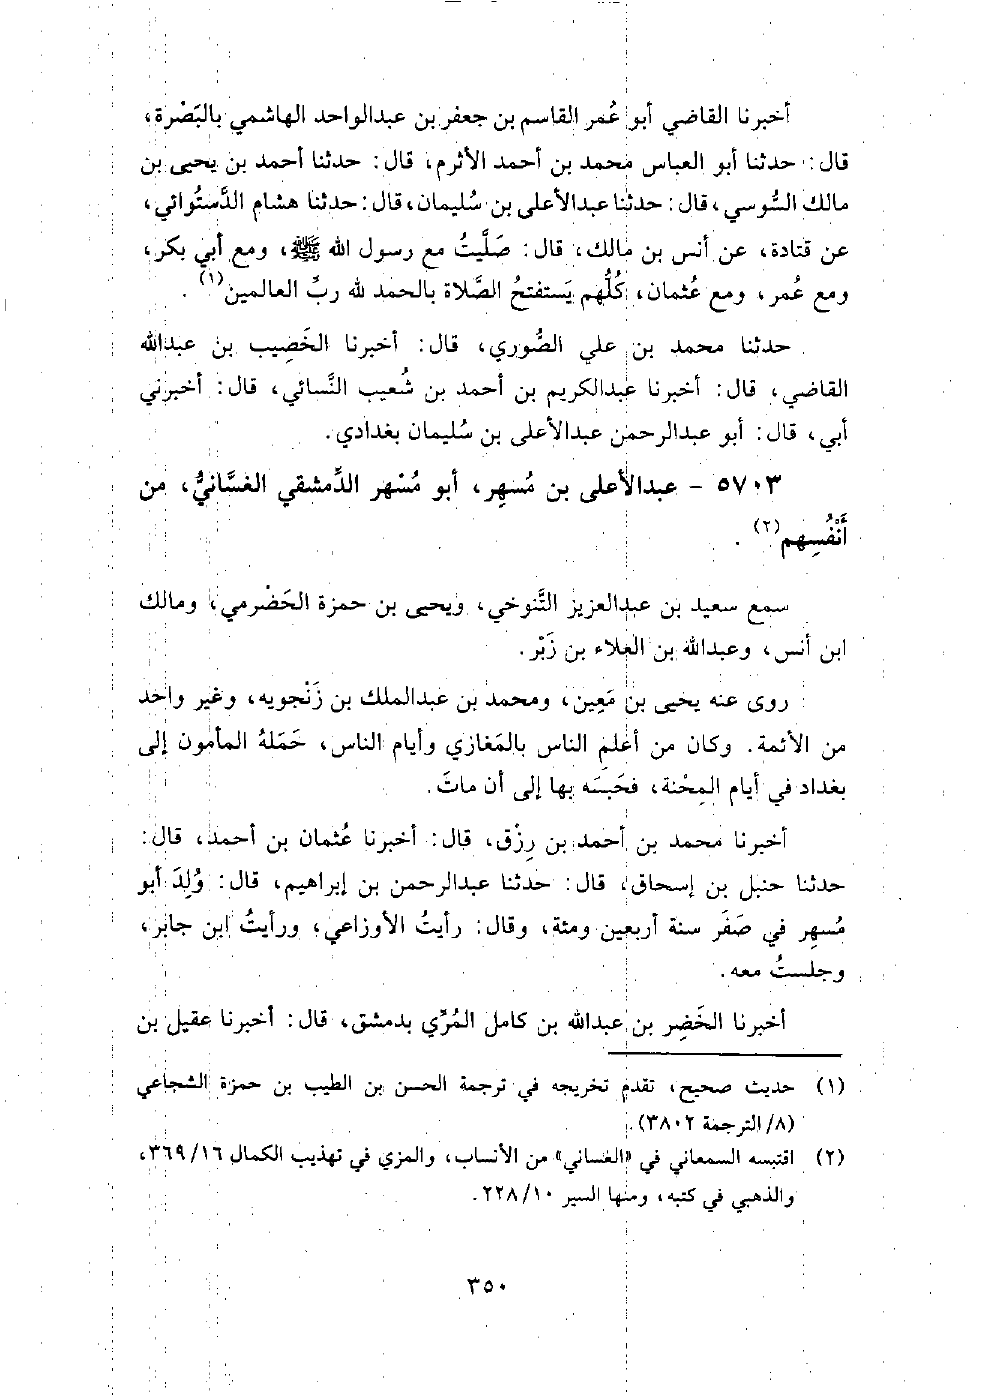 أخبرنا القاضي أبو عُمر القاسم بن جعفر بن عبدالواحد الهاشمي بالبَصْرة،
قال: حدثنا أبو العباس محمد بن أحمد الأثرم، قال: حدثنا أحمد بن يحيى بن
مالك السُّوسي، قال: حدثنا عبدالأعلى بن سُليمان، قال: حدثنا هشام الدَّستُوائي،
عن قتادة، عن أنس بن مالك، قال: صَلَّيتُ مع رسول الله ﷺ، ومع أبي بكر،
ومع عُمر، ومع عُثمان، كُلُّهم يَستفتحُ الصَّلاة بالحمد لله ربِّ العالمين(١).
حدثنا محمد بن علي الصُّوري، قال: أخبرنا الخَصِيب بن عبدالله
القاضي، قال: أخبرنا عبدالكريم بن أحمد بن شُعيب النَّسائي، قال: أخبرني
أبي، قال: أبو عبدالرحمن عبدالأعلى بن سُليمان بغدادي.
٥٧٠٣ - عبدالأعلى بن مُسهِر، أبو مُسْهر الدِّمشقي الغسَّانيُّ، من
أَنْفُسِهم(٢).
سمع سعيد بن عبدالعزيز التَّنوخي، ويحيى بن حمزة الحَضْرمي، ومالك
ابن أنس، وعبدالله بن العلاء بن زَبْر.
روى عنه يحيى بن مَعِين، ومحمد بن عبدالملك بن زَنْجويه، وغير واحد
من الأئمة. وكان من أعلمِ الناس بالمَغازي وأيام الناس، حَمَلهُ المأمون إلى
بغداد في أيام المِحْنة، فحَبسَه بها إلى أن ماتَ.
أخبرنا محمد بن أحمد بن رِزْق، قال: أخبرنا عُثمان بن أحمد، قال:
حدثنا حنبل بن إسحاق، قال: حدثنا عبدالرحمن بن إبراهيم، قال: وُلِدَ أبو
مُسهِر في صَفَر سنة أربعين ومئة، وقال: رأيتُ الأوزاعي، ورأيتُ ابن جابر،
وجلستُ معه.
أخبرنا الخَضِر بن عبدالله بن كامل المُرِّي بدمشق، قال: أخبرنا عقيل بن
(١) حديث صحيح، تقدم تخريجه في ترجمة الحسن بن الطيب بن حمزة الشجاعي
(٨/ الترجمة ٣٨٠٢).
(٢) اقتبسه السمعاني في «الغساني» من الأنساب، والمزي في تهذيب الكمال ١٦/ ٣٦٩،
والذهبي في كتبه، ومنها السير ١٠/ ٢٢٨.
٣٥٠